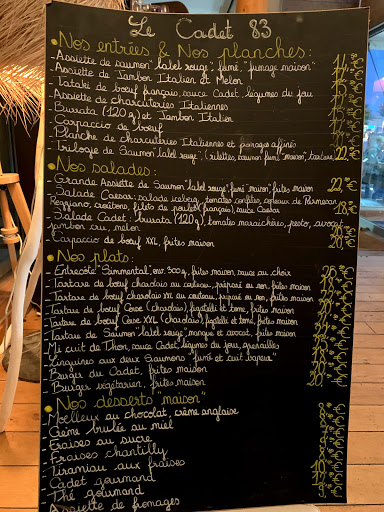 Le Cadet 83
• Nos entrées & Nos planches:
- Assiette de saumon "label rouge", fumé, "fumage maison"
- Assiette de Jambon Italien et Melon
- Tataki de boeuf français, sauce Cadet, légumes du jour
- Assiette de charcuteries Italiennes
- Burrata (120g) et Jambon Italien
- Carpaccio de boeuf
- Planche de charcuteries Italiennes et fromages affinés
- Trilogie de Saumon "label rouge" (rillettes, saumon fumé "maison", tartare) 22,00€
• Nos salades:
- Grande Assiette de Saumon "label rouge", fumé "maison", frites maison 22,00€
- Salade Caesar: salade iceberg, tomates confites, copeaux de Parmesan
Reggiano, croûtons, filets de poulet (français), sauce Caesar 18,00€
- Salade Cadet: burrata (120g), tomates maraîchères, pesto, avocat,
jambon cru, melon
- Carpaccio de boeuf XXL, frites maison
• Nos plats:
- Entrecôte "Simmental", env. 300g, frites maison, sauce au choix
- Tartare de boeuf charolais au couteau, préparé ou non, frites maison
- Tartare de boeuf charolais XXL au couteau, préparé ou non, frites maison
- Tartare de boeuf Corse (charolais), figatelli et tome, frites maison
- Tartare de boeuf Corse XXL (charolais), figatelli et tome, frites maison
- Tartare de Saumon "label rouge" mangue et avocat, frites maison
- Mi cuit de Thon, sauce Cadet, légumes du jour, grenailles
- Linguines aux deux Saumons "fumé et cuit vapeur"
- Burger du Cadet, frites maison
- Burger végétarien, frites maison
• Nos desserts "maison"
- Moelleux au chocolat, crème anglaise
- Crème brulée au miel
- Fraises au sucre
- Fraises chantilly
- Tiramisu aux fraises
- Cadet gourmand
- Thé gourmand
- Assiette de fromages